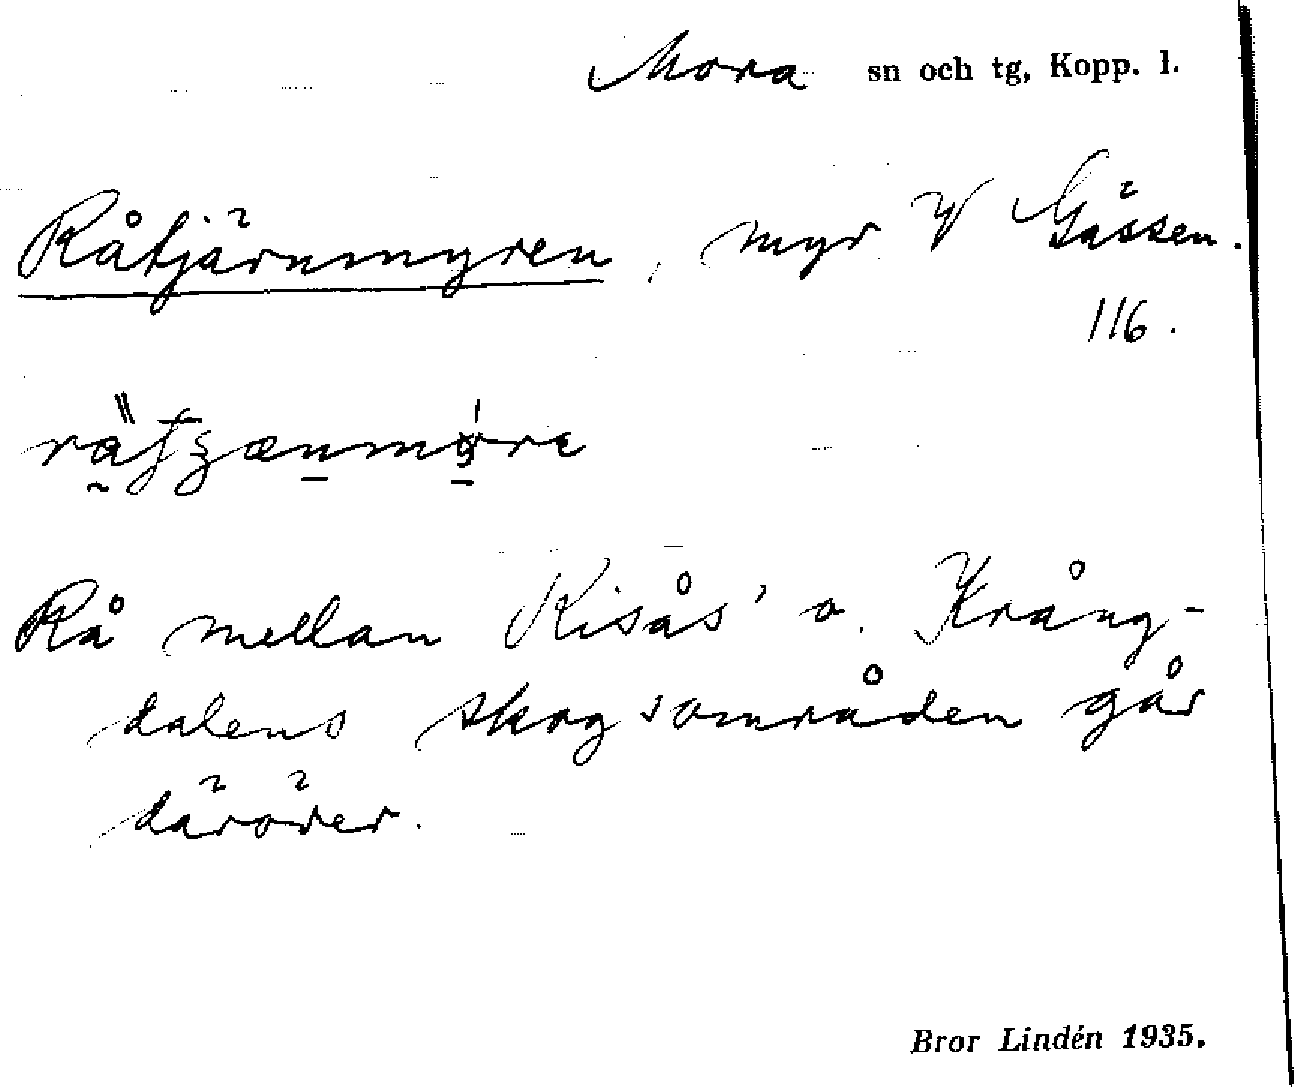 Mora sn och tg, Kopp. l.
Råtjärnmyren, myr V Gässen.
116.
Rå mellan Kisås' o. Krång-
dalens skogsområden går
däröver.
Bror Lindén 1935.